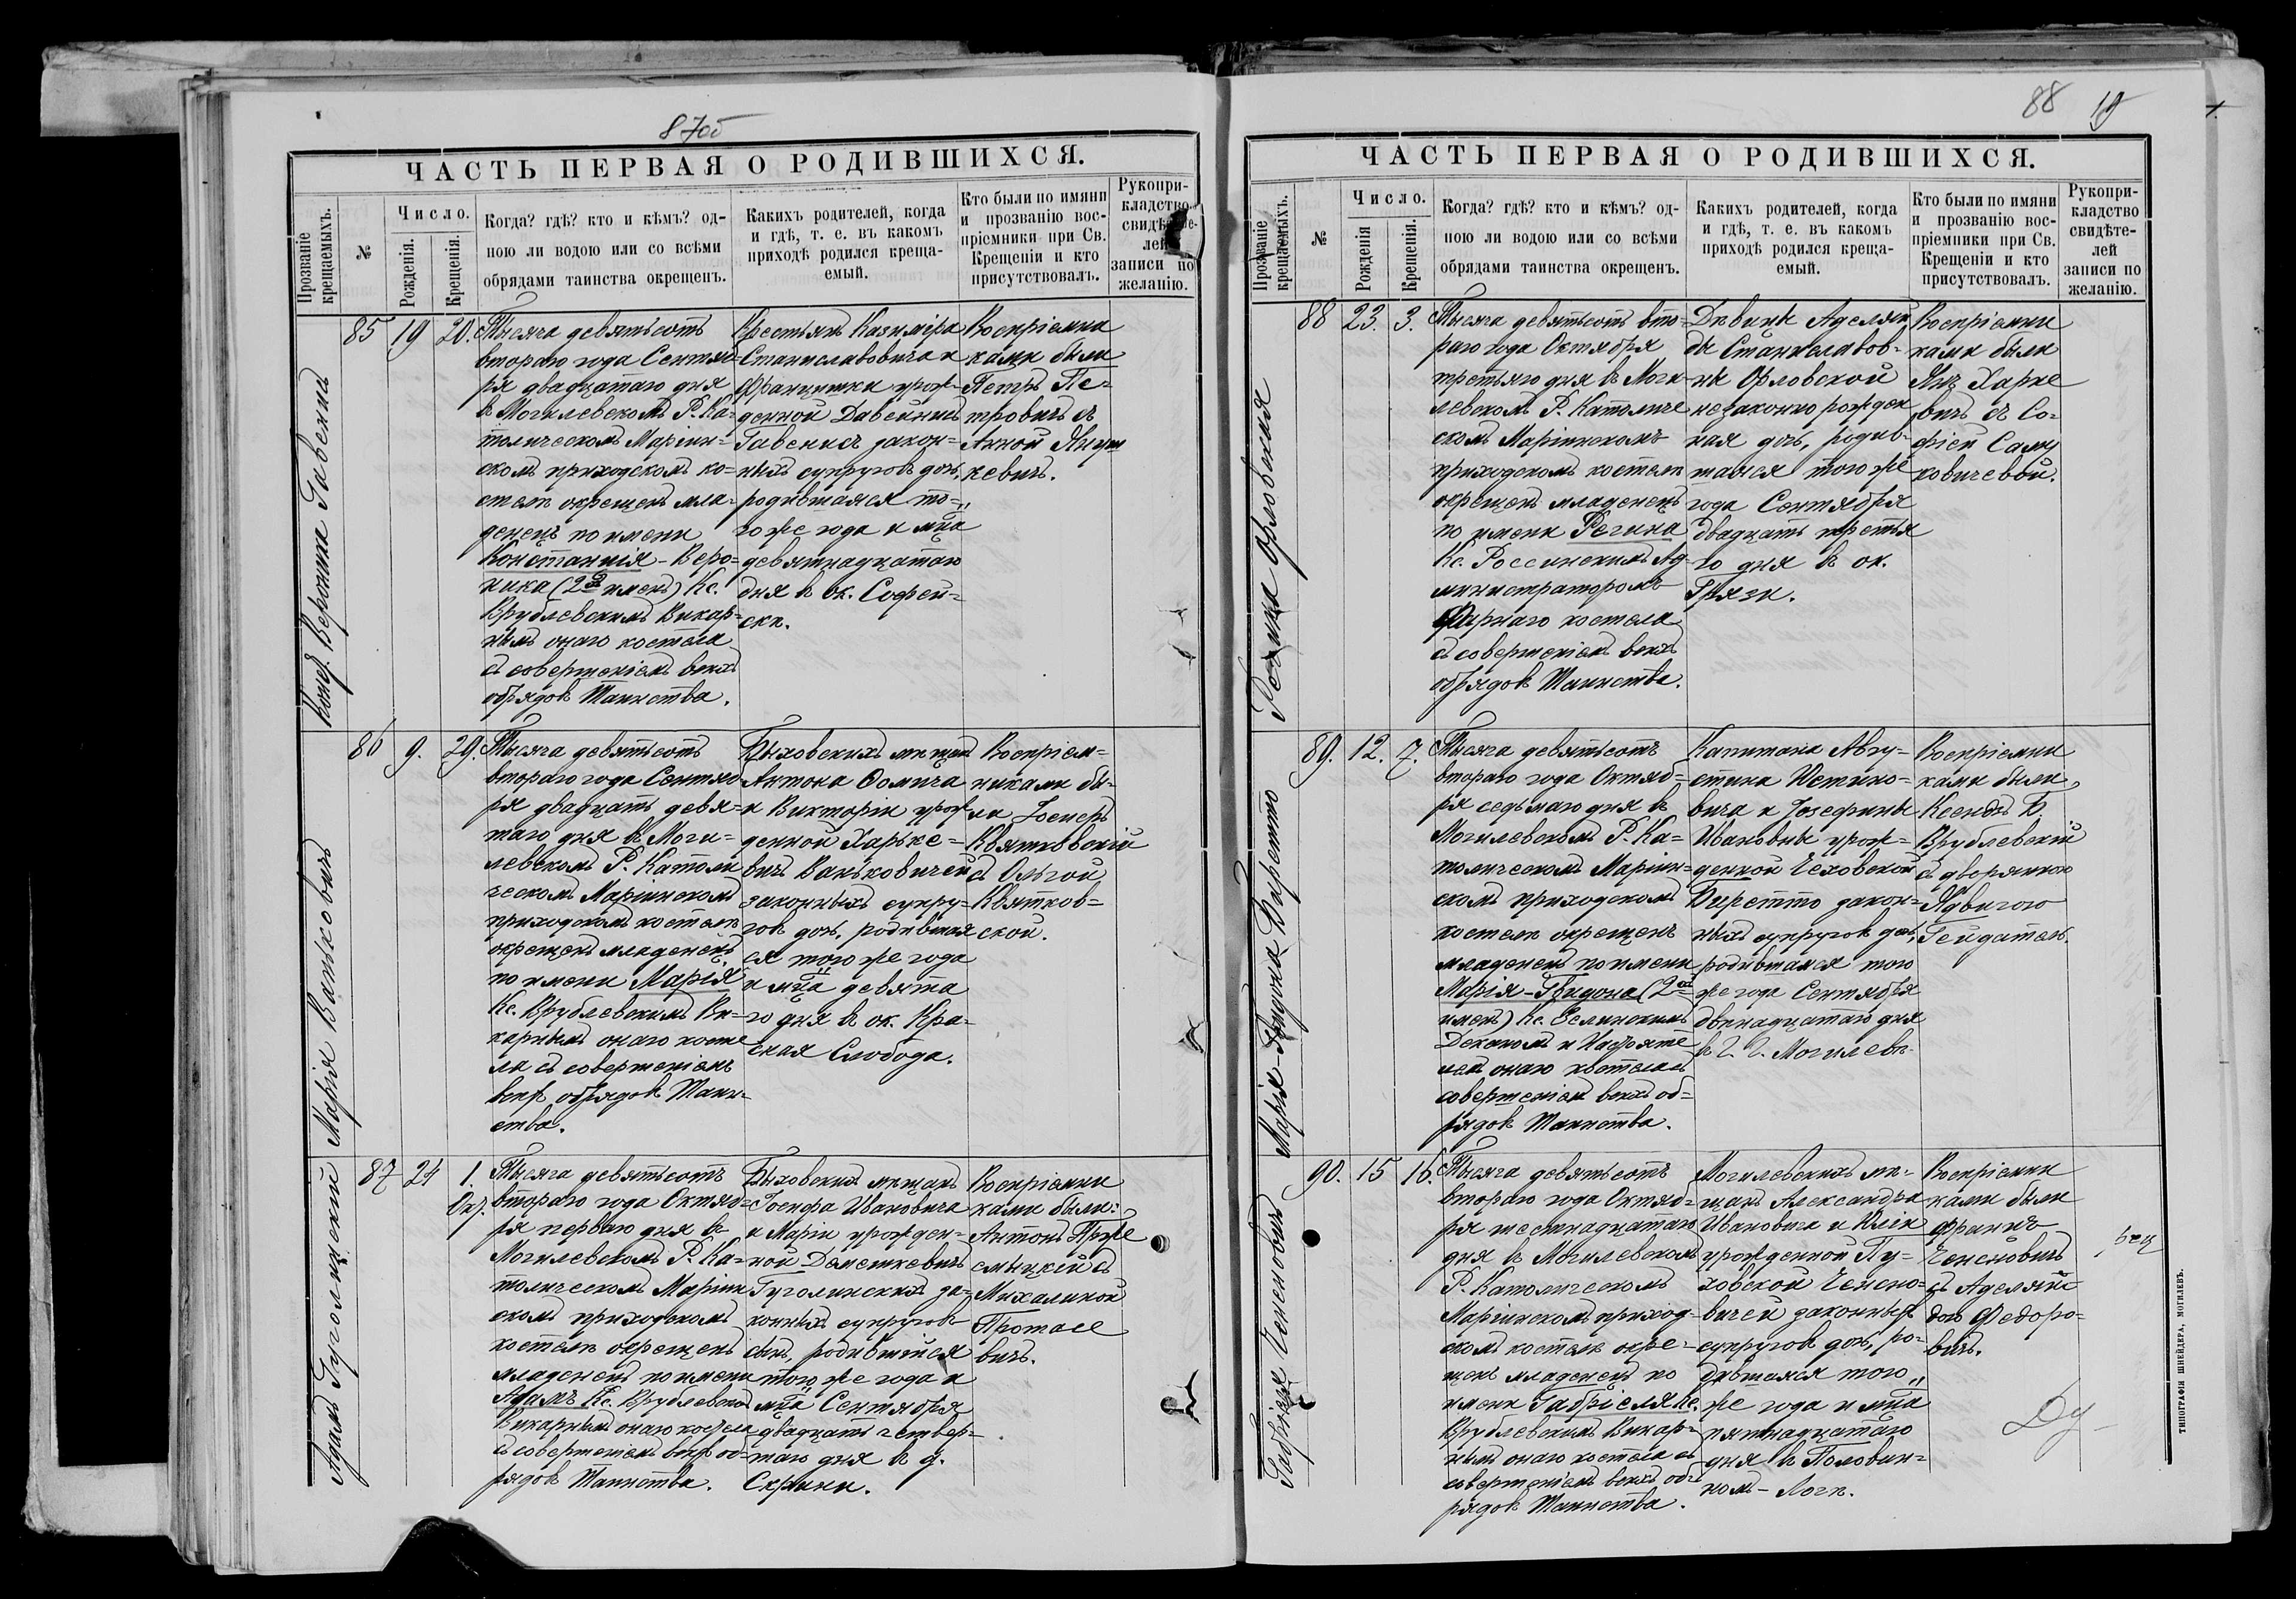 87об
ЧАСТЬ ПЕРВАЯ О РОДИВШИХСЯ.
Прозваніе крещаемыхъ.
№
Число.
Рожденія.
Крещенія.
Когда? гдѣ? кто и кѣмъ? од-
ною ли водою или со всѣми
обрядами таинства окрещенъ.
Какихъ родителей, когда
и гдѣ, т. е. въ какомъ
приходѣ родился креща-
емый.
Кто были по имяни
и прозванію вос-
пріемники при Св.
Крещеніи и кто
присутствовалъ.
Рукопри-
кладство
свидѣте-
лей
записи по
желанію.
Вероника Гавенис
85 19 20.
Тысяча девятьсотъ
втораго года Сентяб-
ря двадцатаго дня
въ Могилевскомъ Р. Ка-
толическомъ Маріин-
скомъ приходскомъ ко-
стелѣ окрещенъ мла-
денецъ по имени
Констанція-Веро-
ника (2ъ именъ) Кс.
Врублевскимъ Викар-
нымъ онаго костела
съ совершеніемъ всѣхъ
обрядовъ Таинства.
Крестьянъ Казиміра
Станиславовича и
Францишки урож-
денной Давейнисъ
Гавенисъ закон-
ныхъ супруговъ дочь,
родившаяся то-
го же года и мца
девятнадцатаго
дня въ ок. Софей-
ски.
Воспріемни
ками были
Петръ Пе-
тровичъ съ
Анной Януш
кевичъ.
Марія Ваньковичъ
86 9. 29.
Тысяча девятьсотъ
втораго года Сентяб
ря двадцать девя-
таго дня въ Моги-
левскомъ Р. Католи
ческомъ Маріинскомъ
приходскомъ костелѣ
окрещенъ младенецъ
по имени Марія
Кс. Врублевскимъ Ви-
карнымъ онаго косте
ла съ совершеніемъ
всѣхъ обрядовъ Таин-
ства.
Быховскихъ мѣщанъ
Антона Ѳомича
и Викторіи урож
денной Харьке-
вичъ Ваньковичей
законныхъ супру-
говъ дочь, родившая
ся того же года
и мца девята
го дня въ ок. Кра-
сная Слобода.
Воспріем-
никами бы-
ли Іосифъ
Квятковскій
съ Ольгой
Квятков-
ской.
Адамъ Гуголинскій
87 24 1.
Окт.
Тысяча девятьсотъ
втораго года Октяб-
ря перваго дня въ
Могилевскомъ Р. Ка-
толическомъ Маріин
скомъ приходскомъ
костелѣ окрещенъ
младенецъ по имени
Адамъ Кс. Врублевскимъ
Викарнымъ онаго костела
съ совершеніемъ всѣхъ об-
рядовъ Таинства.
Быховскихъ мѣщанъ
Іосифа Ивановича
и Маріи урожден-
ной Демешкевичъ
Гуголинскихъ за-
конныхъ супруговъ
сынъ, родившійся
того же года и
мца Сентября
двадцать четвер-
таго дня въ д.
Воспріемни
ками были:
Антонъ Прже
смыцкій съ
Михалиной
Протасе
вичъ.
88 19
ЧАСТЬ ПЕРВАЯ О РОДИВШИХСЯ.
Прозваніе крещаемыхъ.
№
Число.
Рожденія
Крещенія.
Когда? гдѣ? кто и кѣмъ? од-
ною ли водою или со всѣми
обрядами таинства окрещенъ.
Какихъ родителей, когда
и гдѣ, т. е. въ какомъ
приходѣ родился креща-
емый.
Кто были по имяни
и прозванію вос-
пріемники при Св.
Крещеніи и кто
присутствовалъ.
Рукопри-
кладство
свидѣте-
лей
записи по
желанію.
Регина Орловская
88 23. 3.
Тысяча девятьсотъ вто-
раго года Октября
третьяго дня въ Моги
левскомъ Р. Католиче
скомъ Маріинскомъ
приходскомъ костелѣ
окрещенъ младенецъ
по имени Регина
Кс. Россинскимъ Ад-
министраторомъ
Фарнаго костела
съ совершеніемъ всѣхъ
обрядовъ Таинства.
Дѣвицы Аделяи
ды Станиславов-
ны Орловской
незаконно рожден
ная дочь, родив-
шаяся того же
года Сентября
двадцать третья
го дня въ ок.
Грязи.
Воспріемни
ками были
Янъ Харке
вичъ съ Со-
фіей Сами
ковичевой.
Марія-Гвидона Биретто
89. 12. 7.
Тысяча девятьсотъ
втораго года Октяб-
ря седьмаго дня въ
Могилевскомъ Р. Ка-
толическомъ Маріин-
скомъ приходскомъ
костелѣ окрещенъ
младенецъ по имени
Марія-Гвидона (2ъ
именъ) Кс. Деканомъ и Настояте
лемъ онаго костела съ
совершеніемъ всѣхъ об-
рядовъ Таинства.
Капитана Авгу-
стина Устино-
вича и Іозефины
Ивановны урож-
денной Чеховской
Биретто закон-
ныхъ супруговъ дочь,
родившаяся того
же года Сентября
двѣнадцатаго дня
въ г. г. Могилевѣ.
Воспріемни
ками были
Ксендзъ Б.
Врублевскій
съ дворянкою
Ядвигою
Гейдатель.
Габріеля Ченсновичъ
90. 15 16.
Тысяча девятьсотъ
втораго года Октяб-
ря шестнадцатаго
дня въ Могилевскомъ
Р. Католическомъ
Маріинскомъ приход-
скомъ костелѣ окре-
щенъ младенецъ по
имени Габріеля Кс.
Врублевскимъ Викар-
нымъ онаго костела съ
совершеніемъ всѣхъ об-
рядовъ Таинства.
Могилевскихъ мѣ-
щанъ Александра
Ивановича и Юліи
урожденной Пу-
ховской Ченсно-
вичей законныхъ
супруговъ дочь, ро-
дившаяся того
же года и мца
пятнадцатаго
дня въ Половин-
номъ-Логѣ.
Воспріемни
ками были
Францъ
Ченсновичъ
съ Аделяи-
дою Федоро-
вичъ.
ТИПОГРАФІЯ ШНЕЙДЕРА, МОГИЛЕВЪ.